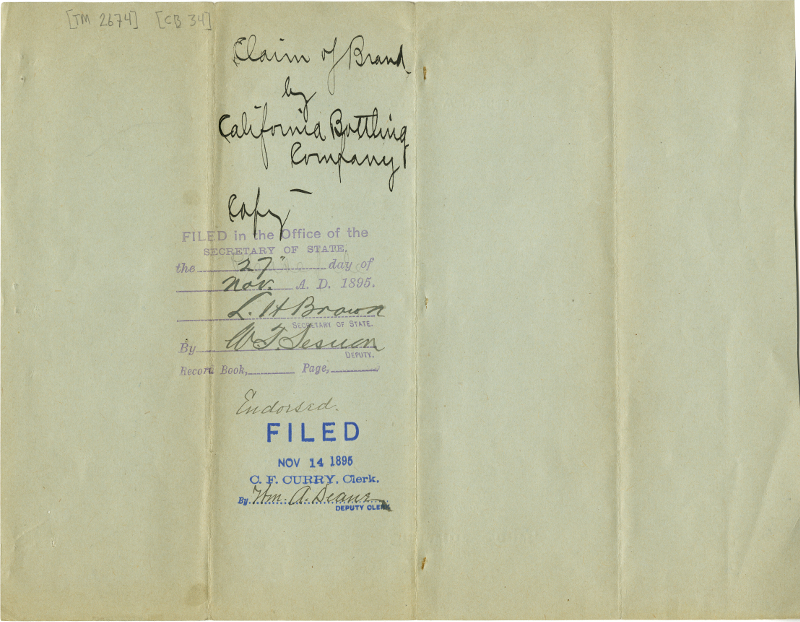 [TM 2674] [CB 34]
Claim of Brand
by
California Bottling
Company
Copy
FILED in the Office of the
SECRETARY OF STATE,
the 27" day of
Nov. A. D. 1895.
L. H Brown
SECRETARY OF STATE.
By W T Sesnon
DEPUTY.
Record Book, Page,
Endorsed.
FILED
NOV 14 1895
C. F. CURRY, Clerk.
By Wm. A. Deane
DEPUTY CLERK